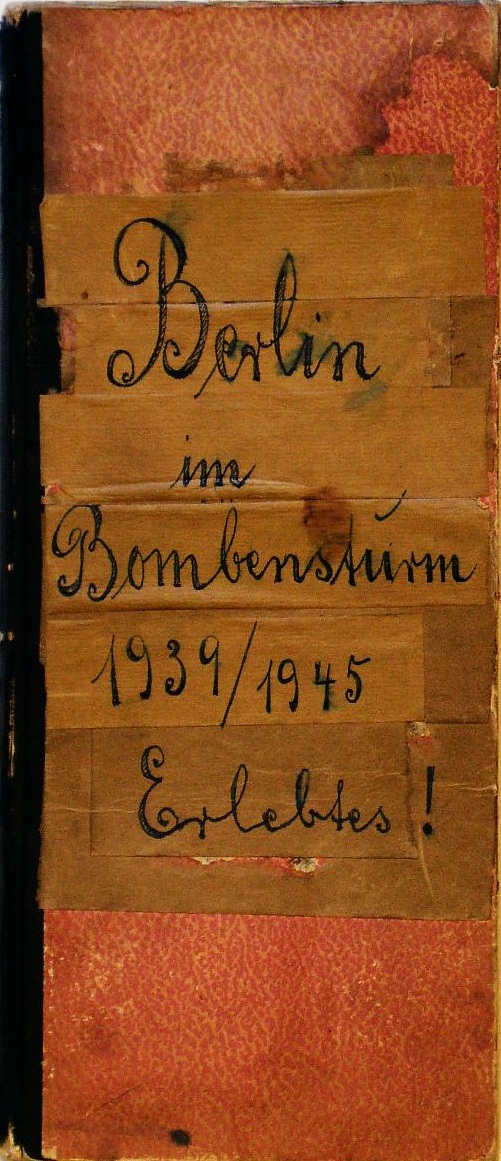 Berlin
im
Bombensturm
1939/1945
Erlebtes!